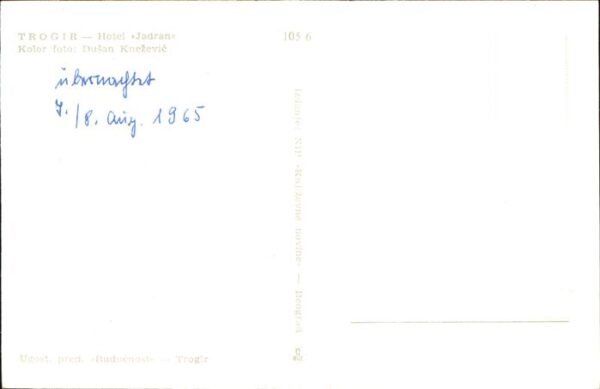 TROGIR — Hotel »Jadran«
Kolor foto: Dušan Knežević
105 6
übernachtet
7./8. Aug. 1965
Izdavač: NIP »Književne novine« — Beograd
Ugost. pred. »Budućnost« — Trogir